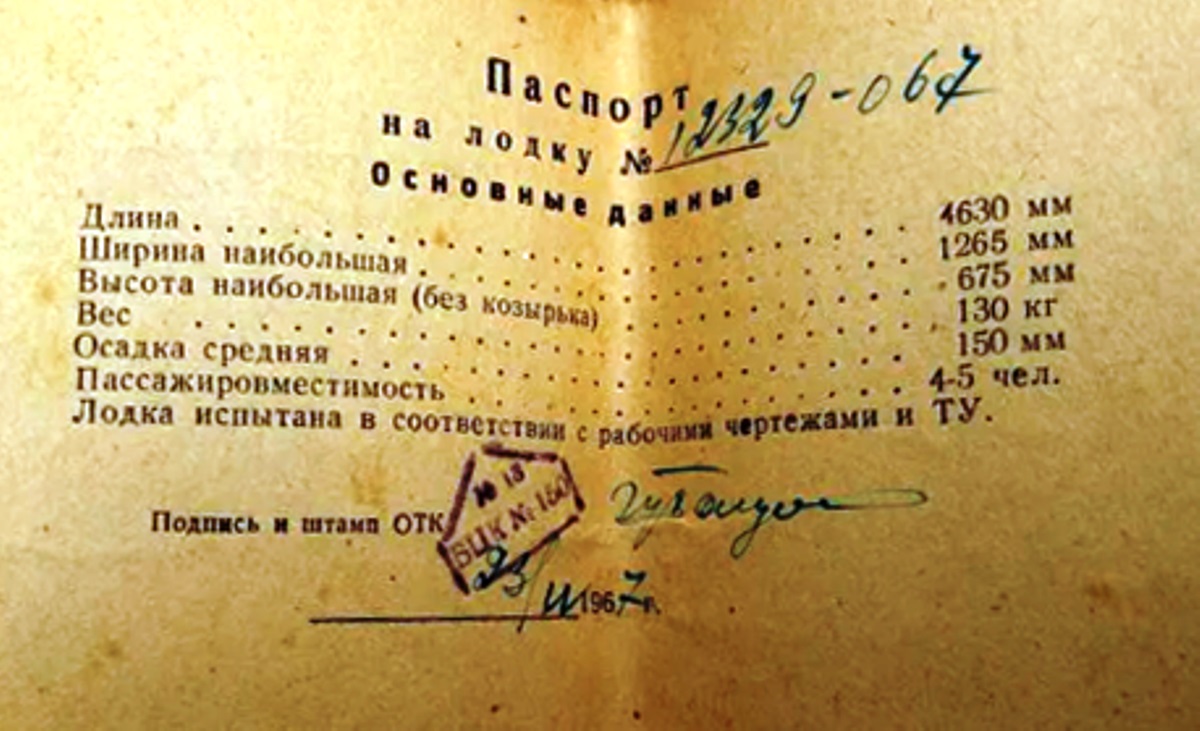 Паспорт
на лодку № 12329-067
Основные данные
Длина . . . . . . . . . . . . . . . . . . . . 4630 мм
Ширина наибольшая . . . . . . . . . . . . . . 1265 мм
Высота наибольшая (без козырька) . . . . . . . 675 мм
Вес . . . . . . . . . . . . . . . . . . . . . 130 кг
Осадка средняя . . . . . . . . . . . . . . . . 150 мм
Пассажировместимость . . . . . . . . . . . . . 4-5 чел.
Лодка испытана в соответствии с рабочими чертежами и ТУ.
№ 13
БЦК № 150
Подпись и штамп ОТК
23/III 1967 г.